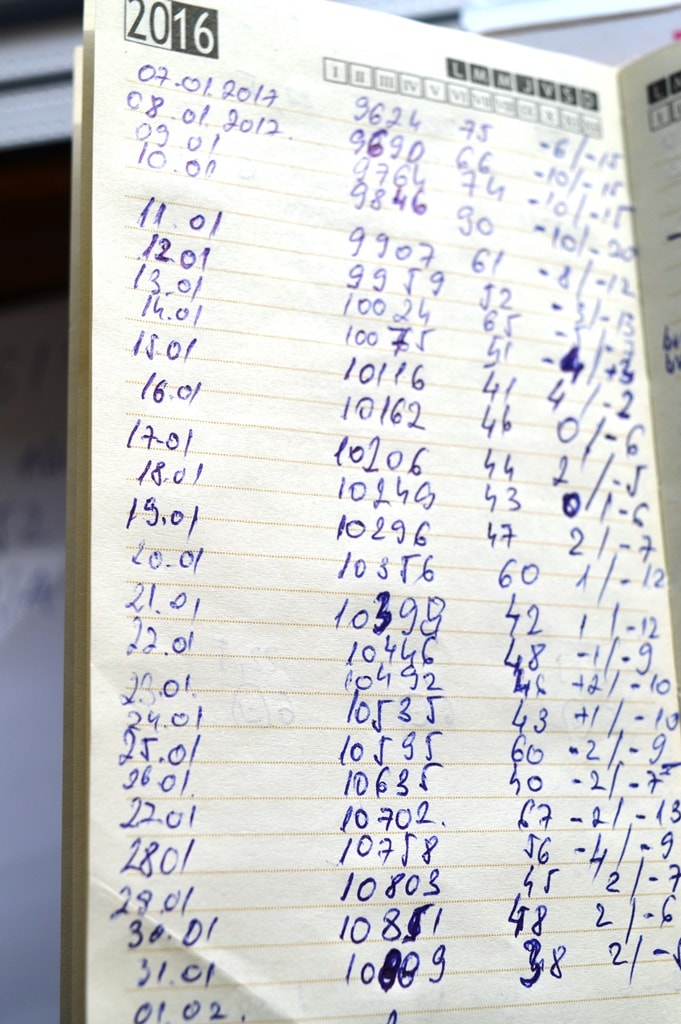 2016
L M M J V S D
I II III IV V VI VII VIII IX X XI XII
07.01.2017 9624 75 -6/-15
08.01.2017. 9690 66 -10/-15
09.01 9764 74 -10/-15
10.01 9846 90 -10/-20
11.01 9907 61 -8/-12
12.01 9959 52 -3/-13
13.01 10024 65
14.01 10075 51 -4/+3
15.01 10116 41 4/-2
16.01 10162 46 0/-6
17.01 10206 44 2/-5
18.01 10249 43 0/-6
19.01 10296 47 2/-7
20.01 10356 60 1/-12
21.01 10399 42 1/-12
22.01 10446 48 -1/-9
23.01. 10492 46 +2/-10
24.01 10535 43 +1/-10
25.01 10595 60 -2/-9
26.01 10635 40 -2/-7
27.01 10702. 67 -2/-13
28.01 10758 56 -4/-9
29.01 10803 45 2/-7
30.01 10851 48 2/-6
31.01 38 2/-5
01.02.